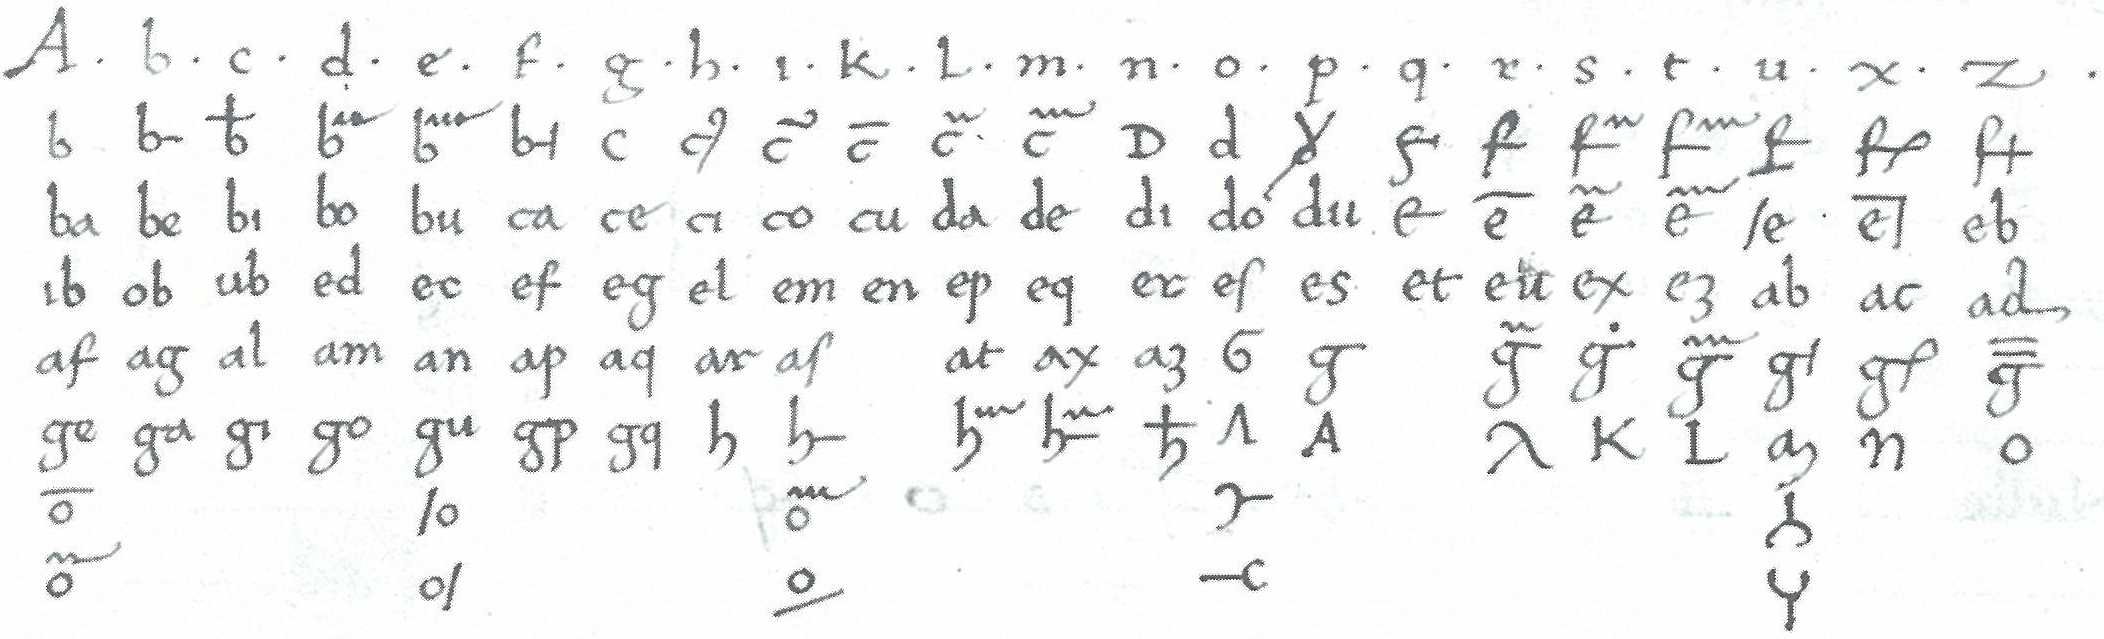 A · b · c · d · e · f · g · h · ı · k · L · m · n · o · p · q · r · s · t · u · x · z ·
b b b b b b c c c̃ c̄ c c D d f f f f f f
ba be bı bo bu ca ce cı co cu da de dı do du e ē e e /e e eb
ıb ob ub ed ec ef eg el em en ep eq er eſ es et eu ex eʒ ab ac ad
af ag al am an ap aq ar aſ at ax aʒ G g g ġ g g g g
ge ga gı go gu gp gq h h h h h Λ A λ K L n o
ō /o o
o o/ o